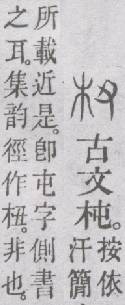 古文杶。按依
汗簡
所載近是。卽屯字側書
之耳。集韵徑作杻。非也。